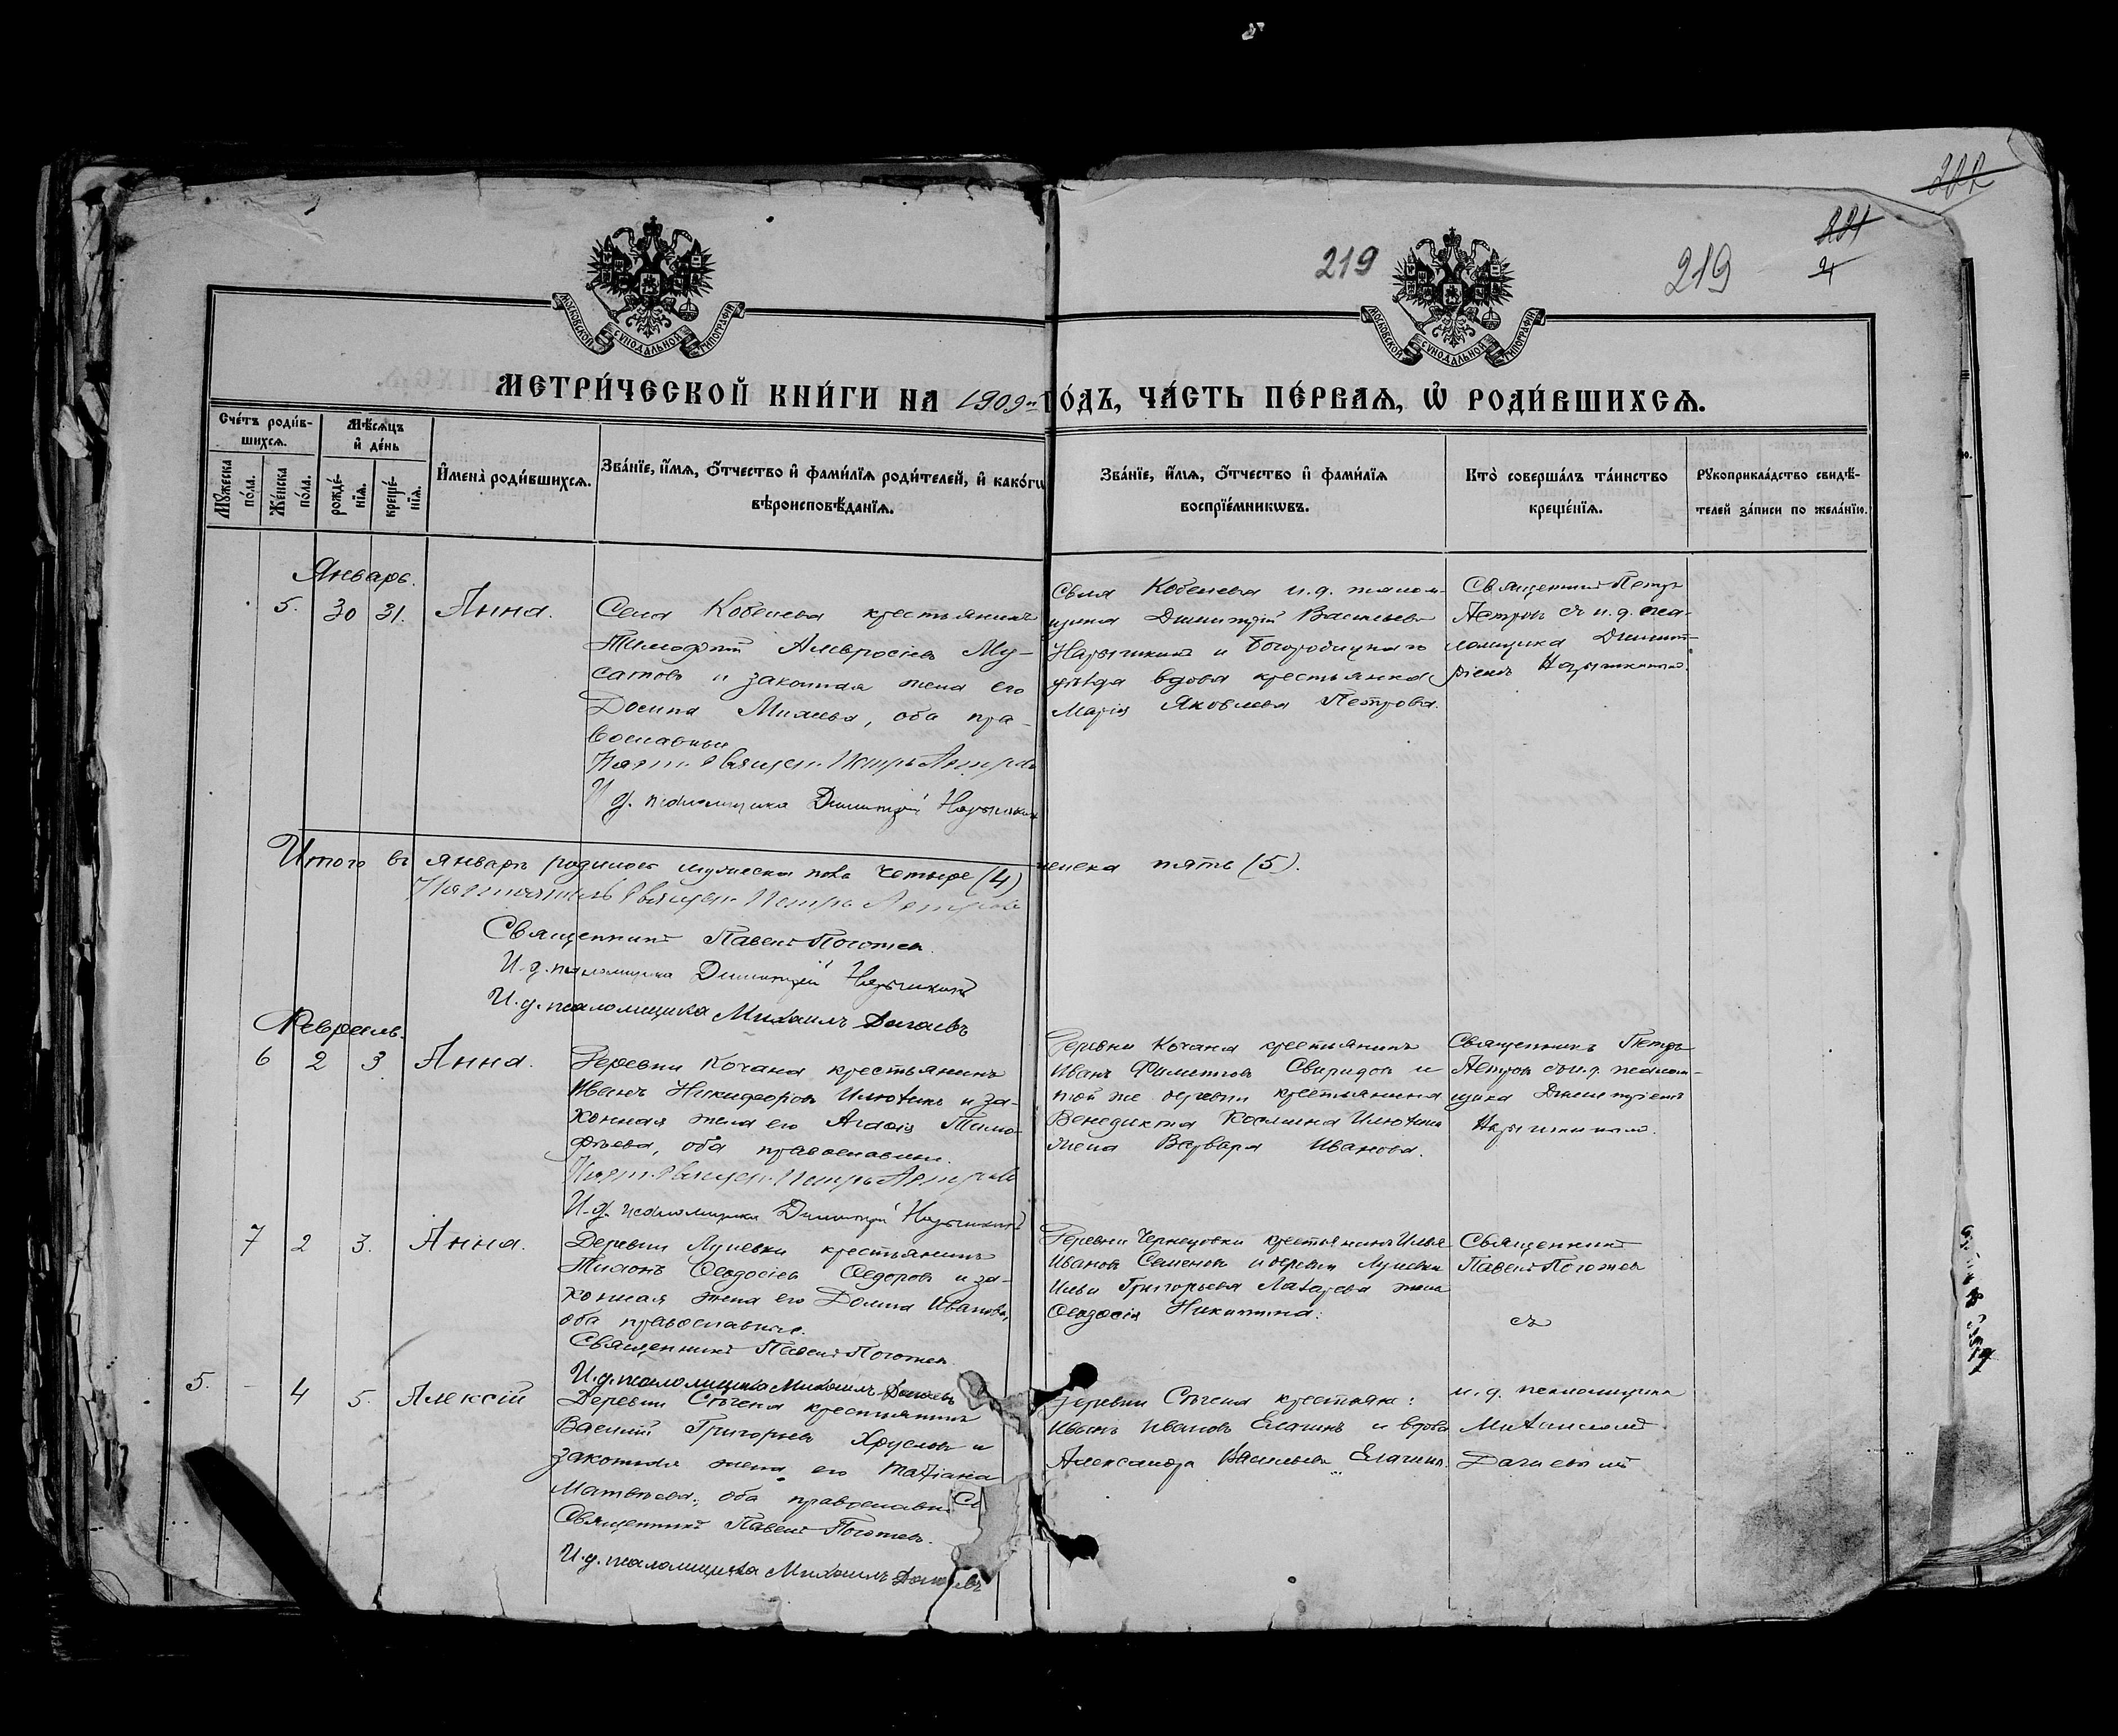 219
219
МОСКОВСКОЙ СУНОДАЛЬНОЙ ТИПОГРАФІИ
МОСКОВСКОЙ СУНОДАЛЬНОЙ ТИПОГРАФІИ
МЕТРИ́ЧЕСКОЙ КНИ́ГИ НА 1909 ГО́ДЪ, ЧА́СТЬ ПЕ́РВАѦ, Ѽ РОДИ́ВШИХСѦ.
Сче́тъ роди́в-
шихсѧ.
Мꙋжеска по́ла.
Же́нска по́ла.
Мѣ́сѧцъ
и҆ де́нь
рожде́-
нїѧ.
креще́-
нїѧ.
И҆мена̀ роди́вшихсѧ.
Зва́нїе, и҆́мѧ, ѻ҆́тчество и҆ фами́лїѧ роди́телей, и҆ како́гѡ
вѣроисповѣ́данїѧ.
Зва́нїе, и҆́мѧ, ѻ҆́тчество и҆ фами́лїѧ
воспрїе́мникѡвъ.
Кто̀ соверша́лъ та́инство
креще́нїѧ.
Рꙋкоприкла́дство свидѣ́-
телей за́писи по жела́нїю.
Январь.
5. 30 31. Анна.
Села Кобенева крестьянинъ
Тимофей Амвросіевъ Му-
сатовъ и законная жена его
Домна Михеева, оба пра-
вославные
Священ. Петръ
И. д. псаломщика Димитрій Нарышкинъ
Села Кобенева и. д. псалом-
щика Димитрій Васильевъ
Нарышкинъ и Богородицкаго
уѣзда вдова крестьянка
Марія Яковлева Петрова.
Священникъ Петръ
Петровъ съ и. д. пса-
ломщика Димит-
ріемъ Нарышкинымъ.
Итого въ январѣ родилось мужеска пола четыре (4) женска пять (5).
Священ. Петръ
Священникъ Павелъ
И. д. псаломщика Димитрій Нарышкинъ
И. д. псаломщика Михаилъ Дагаевъ
Февраль.
6 2 3 Анна.
Деревни Кочана крестьянинъ
Иванъ Никифоровъ Илютинъ и за-
конная жена его Агаѳія Тимо-
фѣева, оба православные.
Священ. Петръ
И. д. псаломщика Димитрій Нарышкинъ
Деревни Кочана крестьянинъ
Иванъ Филипповъ Свиридовъ и
той же деревни крестьянина
Венедикта Космина Илютина
жена Варвара Иванова.
Священникъ Петръ
Петровъ съ и. д. псалом-
щика Димитріемъ
Нарышкинымъ.
7 2 3. Анна.
Деревни Луневки крестьянинъ
Тихонъ Ѳеодосіевъ Ѳедоровъ и за-
конная жена его Домна Иванова,
оба православные.
Священникъ Павелъ
И. д. псаломщика Михаилъ Дагаевъ
Деревни Чернецовки крестьянинъ Илья
Ивановъ Семеновъ и деревни Луневки
Ильи Григорьева Лазарева жена
Ѳеодосія Никитина.
Священникъ
Павелъ
съ
и. д. псаломщика
Михаиломъ
Дагаевымъ
5. - 4 5. Алексій
Деревни Стегена крестьянинъ
Василій Григорьевъ Хрусловъ и
законная жена его Татіана
Матвѣева, оба православные
Священникъ Павелъ
И. д. псаломщика Михаилъ Дагаевъ
Деревни Стегена крестьяне:
Иванъ Ивановъ Елагинъ и вдова
Александра Васильева Елагина.